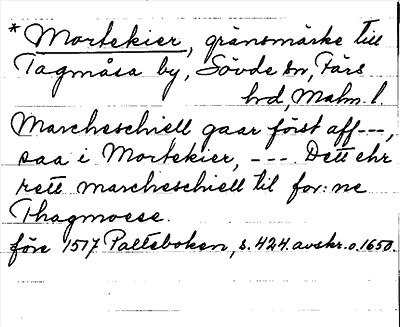 * Mortekier, gränsmärke till
Tagmåsa by, Sövde sn, Färs
hd, Malm. l.
Marcheschiell gaar först aff ---,
saa i Mortekier, --- Dett ehr
rett marcheschiell til for: ne
Thagmosse.
före 1517 Paltsboken, s. 424. avskr. o. 1650.